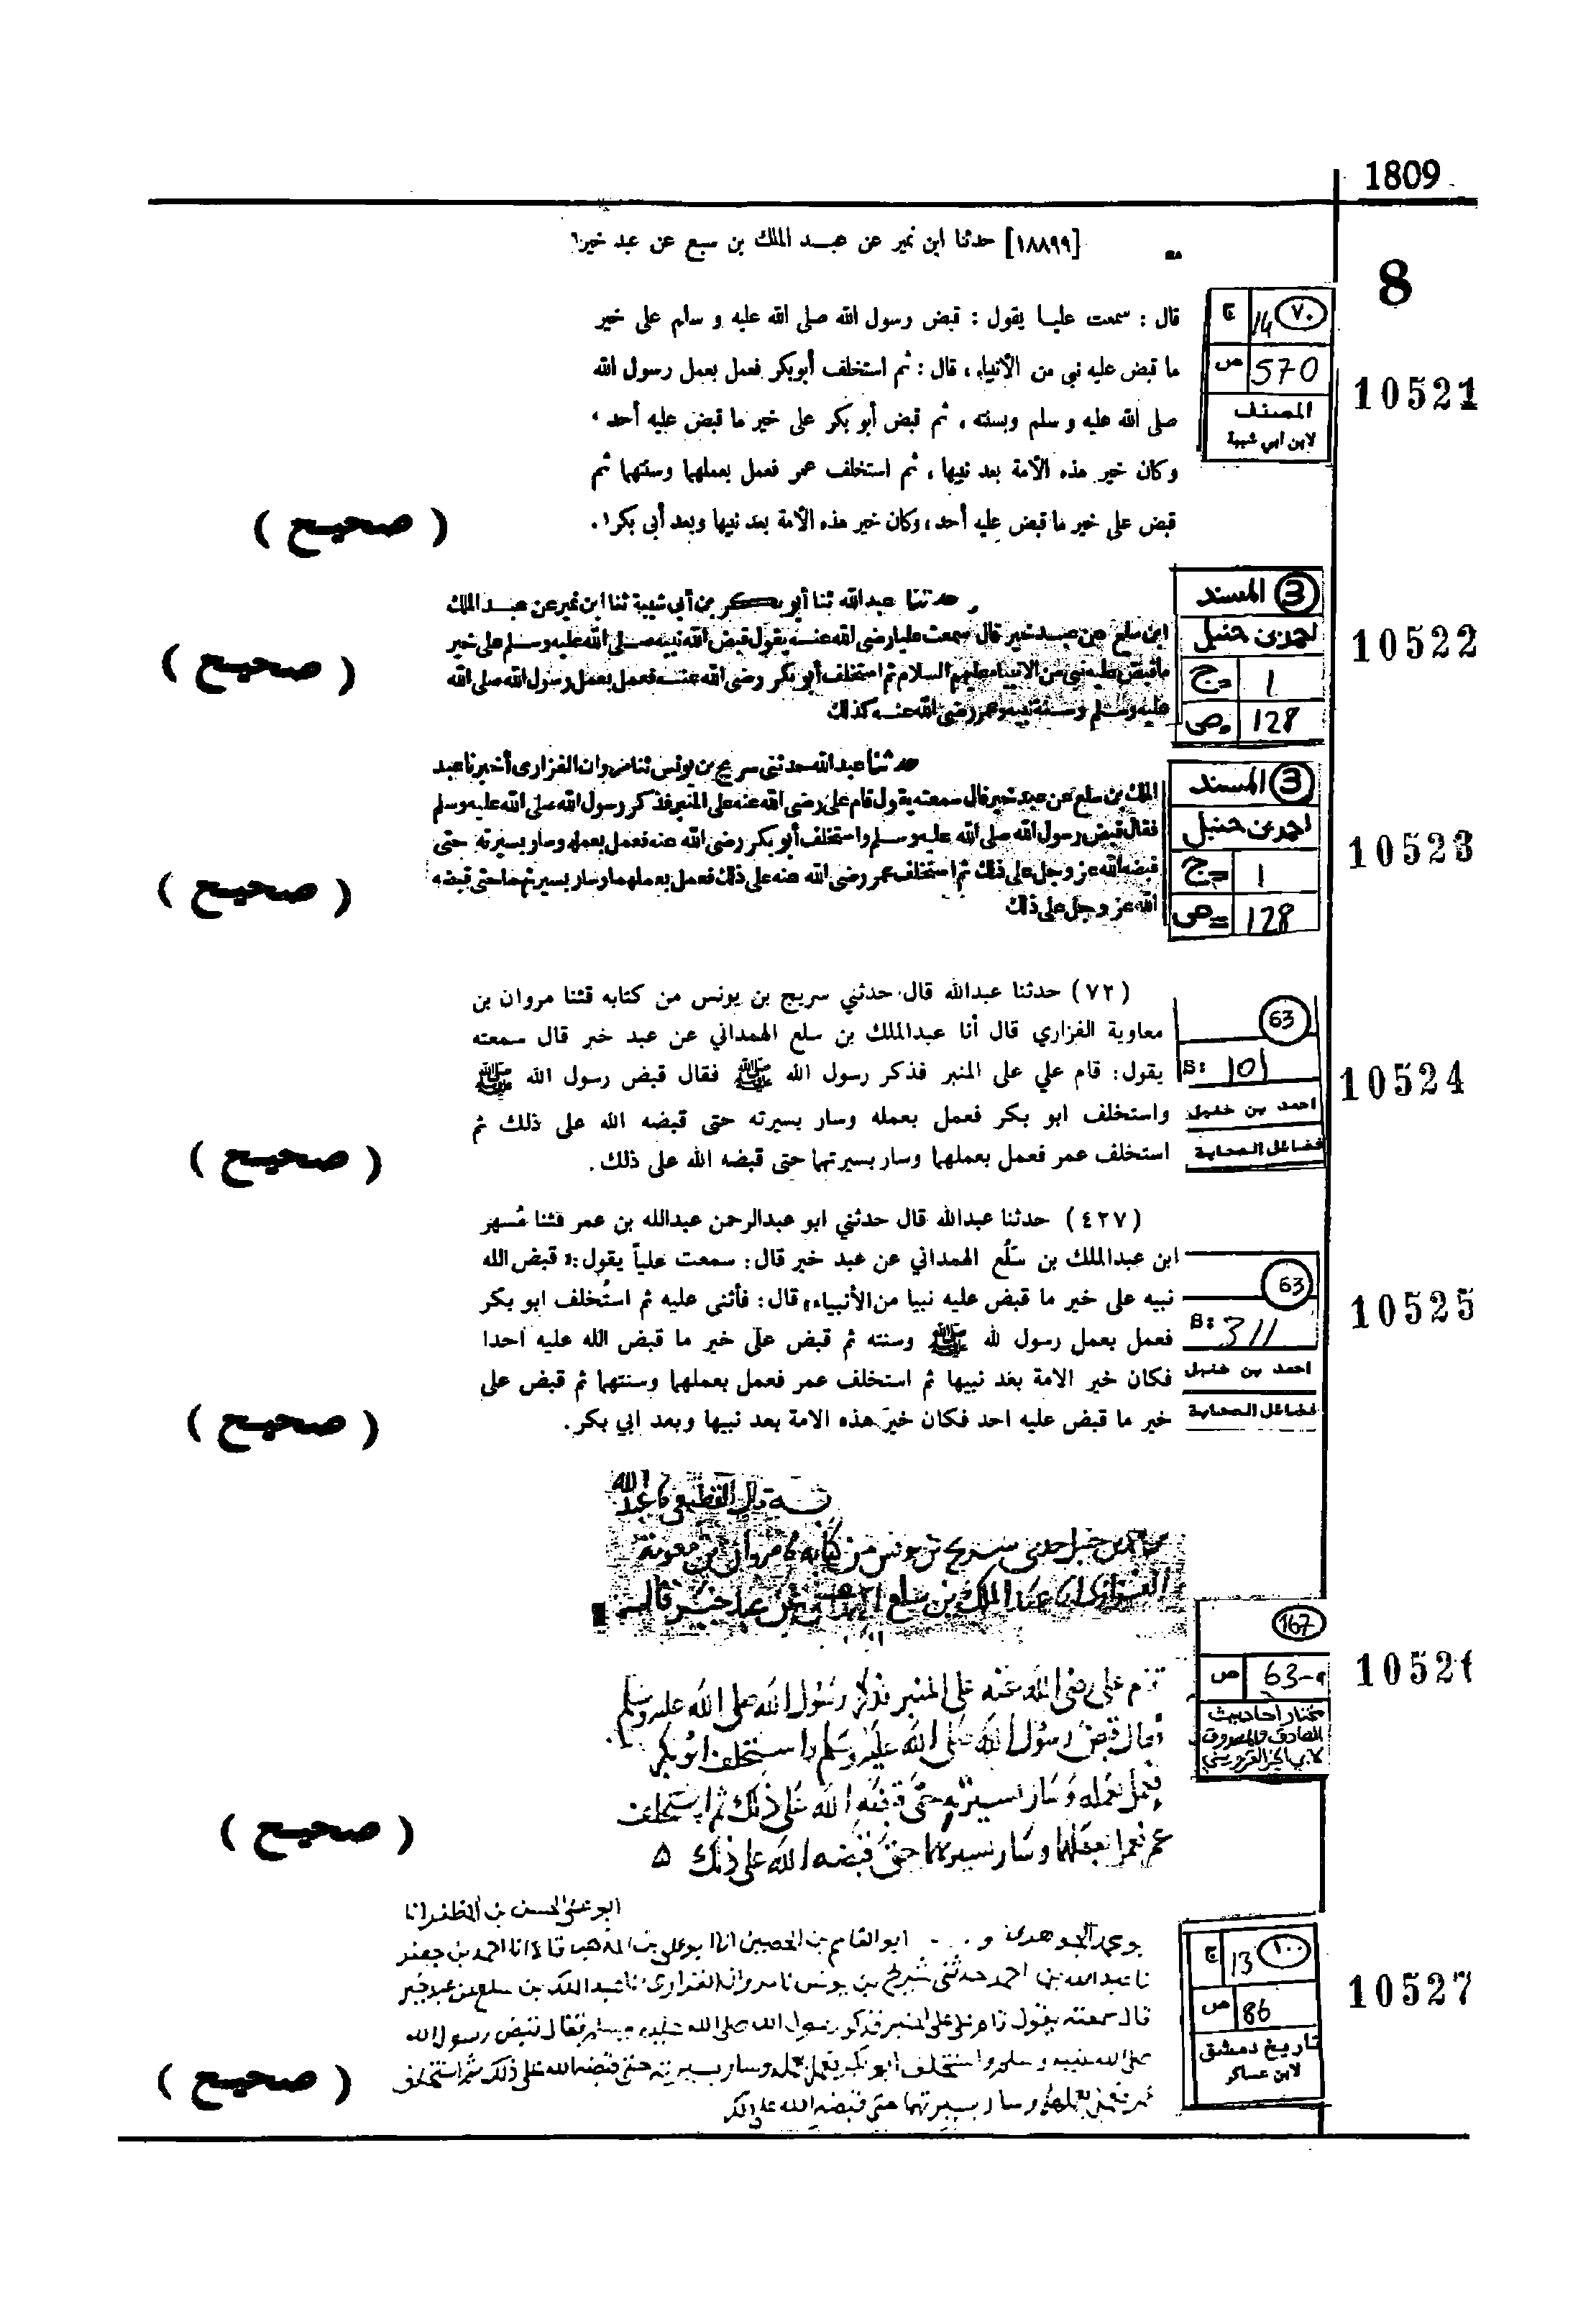 1809
8
[١٨٨٩٩] حدثنا ابن نمير عن عبد الملك بن سبع عن عبد خير
٧٠
ج 14
ص 570
المصنف
لابن ابي شيبة
10521
قال : سمعت عليا يقول : قبض رسول الله صلى الله عليه و سلم على خير
ما قبض عليه نبي من الأنبياء ، قال : ثم استخلف أبوبكر فعمل بعمل رسول الله
صلى الله عليه و سلم وبسنته ، ثم قبض أبو بكر على خير ما قبض عليه أحد ،
وكان خير هذه الأمة بعد نبيها ، ثم استخلف عمر فعمل بعملهما وسنتهما ثم
قبض على خير ما قبض عليه أحد ، وكان خير هذه الأمة بعد نبيها وبعد أبي بكر .
( صحيح )
3 المسند
احمد بن حنبل
ج 1
ص 128
10522
حدثنا عبدالله ثنا أبو بكر بن أبي شيبة ثنا ابن نمير عن عبد الملك
ابن سلع عن عبد خير قال سمعت عليا رضى الله عنه يقول قبض الله نبيه صلى الله عليه وسلم على خير
ما قبض عليه نبي من الانبياء عليهم السلام ثم استخلف أبو بكر رضى الله عنه فعمل بعمل رسول الله صلى الله
عليه وسلم وسنة نبيه وعمر رضى الله عنه كذلك
( صحيح )
3 المسند
احمد بن حنبل
ج 1
ص 128
10523
حدثنا عبد الله حدثنى سريج بن يونس ثنا مروان الفزارى أخبرنا عبد
الملك بن سلع عن عبد خير قال سمعته يقول قام على رضى الله عنه على المنبر فذكر رسول الله صلى الله عليه وسلم
فقال قبض رسول الله صلى الله عليه وسلم واستخلف أبو بكر رضى الله عنه فعمل بعمله وسار بسيرته حتى
قبضه الله عز وجل على ذلك ثم استخلف عمر رضى الله عنه على ذلك فعمل بعملهما وسار بسيرتهما حتى قبضه
الله عز وجل على ذلك
( صحيح )
63
S: 101
احمد بن حنبل
فضائل الصحابة
10524
(٧٢) حدثنا عبدالله قال حدثني سريج بن يونس من كتابه قثنا مروان بن
معاوية الفزاري قال أنا عبدالملك بن سلع الهمداني عن عبد خبر قال سمعته
يقول: قام علي على المنبر فذكر رسول الله ﷺ فقال قبض رسول الله ﷺ
واستخلف ابو بكر فعمل بعمله وسار بسيرته حتى قبضه الله على ذلك ثم
استخلف عمر فعمل بعملهما وسار بسيرتهما حتى قبضه الله على ذلك .
( صحيح )
63
S: 311
احمد بن حنبل
فضائل الصحابة
10525
(٤٢٧) حدثنا عبدالله قال حدثني ابو عبدالرحمن عبدالله بن عمر قثنا مُسهر
ابن عبدالملك بن سَلْع الهمداني عن عبد خير قال: سمعت علياً يقول: « قبض الله
نبيه على خير ما قبض عليه نبيا من الأنبياء» قال: فأثنى عليه ثم استُخلف ابو بكر
فعمل بعمل رسول لله ﷺ وسنته ثم قبض على خير ما قبض الله عليه احدا
فكان خير الامة بعد نبيها ثم استخلف عمر فعمل بعملهما وسنتهما ثم قبض على
خير ما قبض عليه احد فكان خير هذه الامة بعد نبيها وبعد ابي بكر.
( صحيح )
167
ص 63-
مختار احاديث
10526
قال القطيعي نا عبد الله
بن حنبل حدثنى سريج بن يونس من كتابه نا مروان بن معوية
الفزارى انا عبد الملك بن سلع الهمداني عن عبد خير قال
على رضى الله عنه على المنبر فذكر رسول الله صلى الله عليه وسلم
فقال قبض رسول الله صلى الله عليه وسلم واستخلف ابو بكر
فعمل بعمله وسار بسيرته حتى قبضه الله على ذلك ثم استخلف
عمر فعمل بعملهما وسار بسيرتهما حتى قبضه الله على ذلك ۵
( صحيح )
١٠٠
ج 13
ص 86
تاريخ دمشق
لابن عساكر
10527
ابو علي الحسن بن المظفر انا
ابو محمد الجوهرى و . . . ابو القاسم بن الحصين انا ابو علي بن المذهب قالا انا احمد بن جعفر
نا عبد الله بن احمد حدثنى سريج بن يونس نا مروان الفزارى نا عبد الملك بن سلع عن عبد خير
قال سمعته يقول قام على على المنبر فذكر رسول الله صلى الله عليه وسلم فقال قبض رسول الله
صلى الله عليه وسلم واستخلف ابو بكر فعمل بعمله وسار بسيرته حتى قبضه الله على ذلك ثم استخلف
عمر فعمل بعملهما وسار بسيرتهما حتى قبضه الله على ذلك
( صحيح )